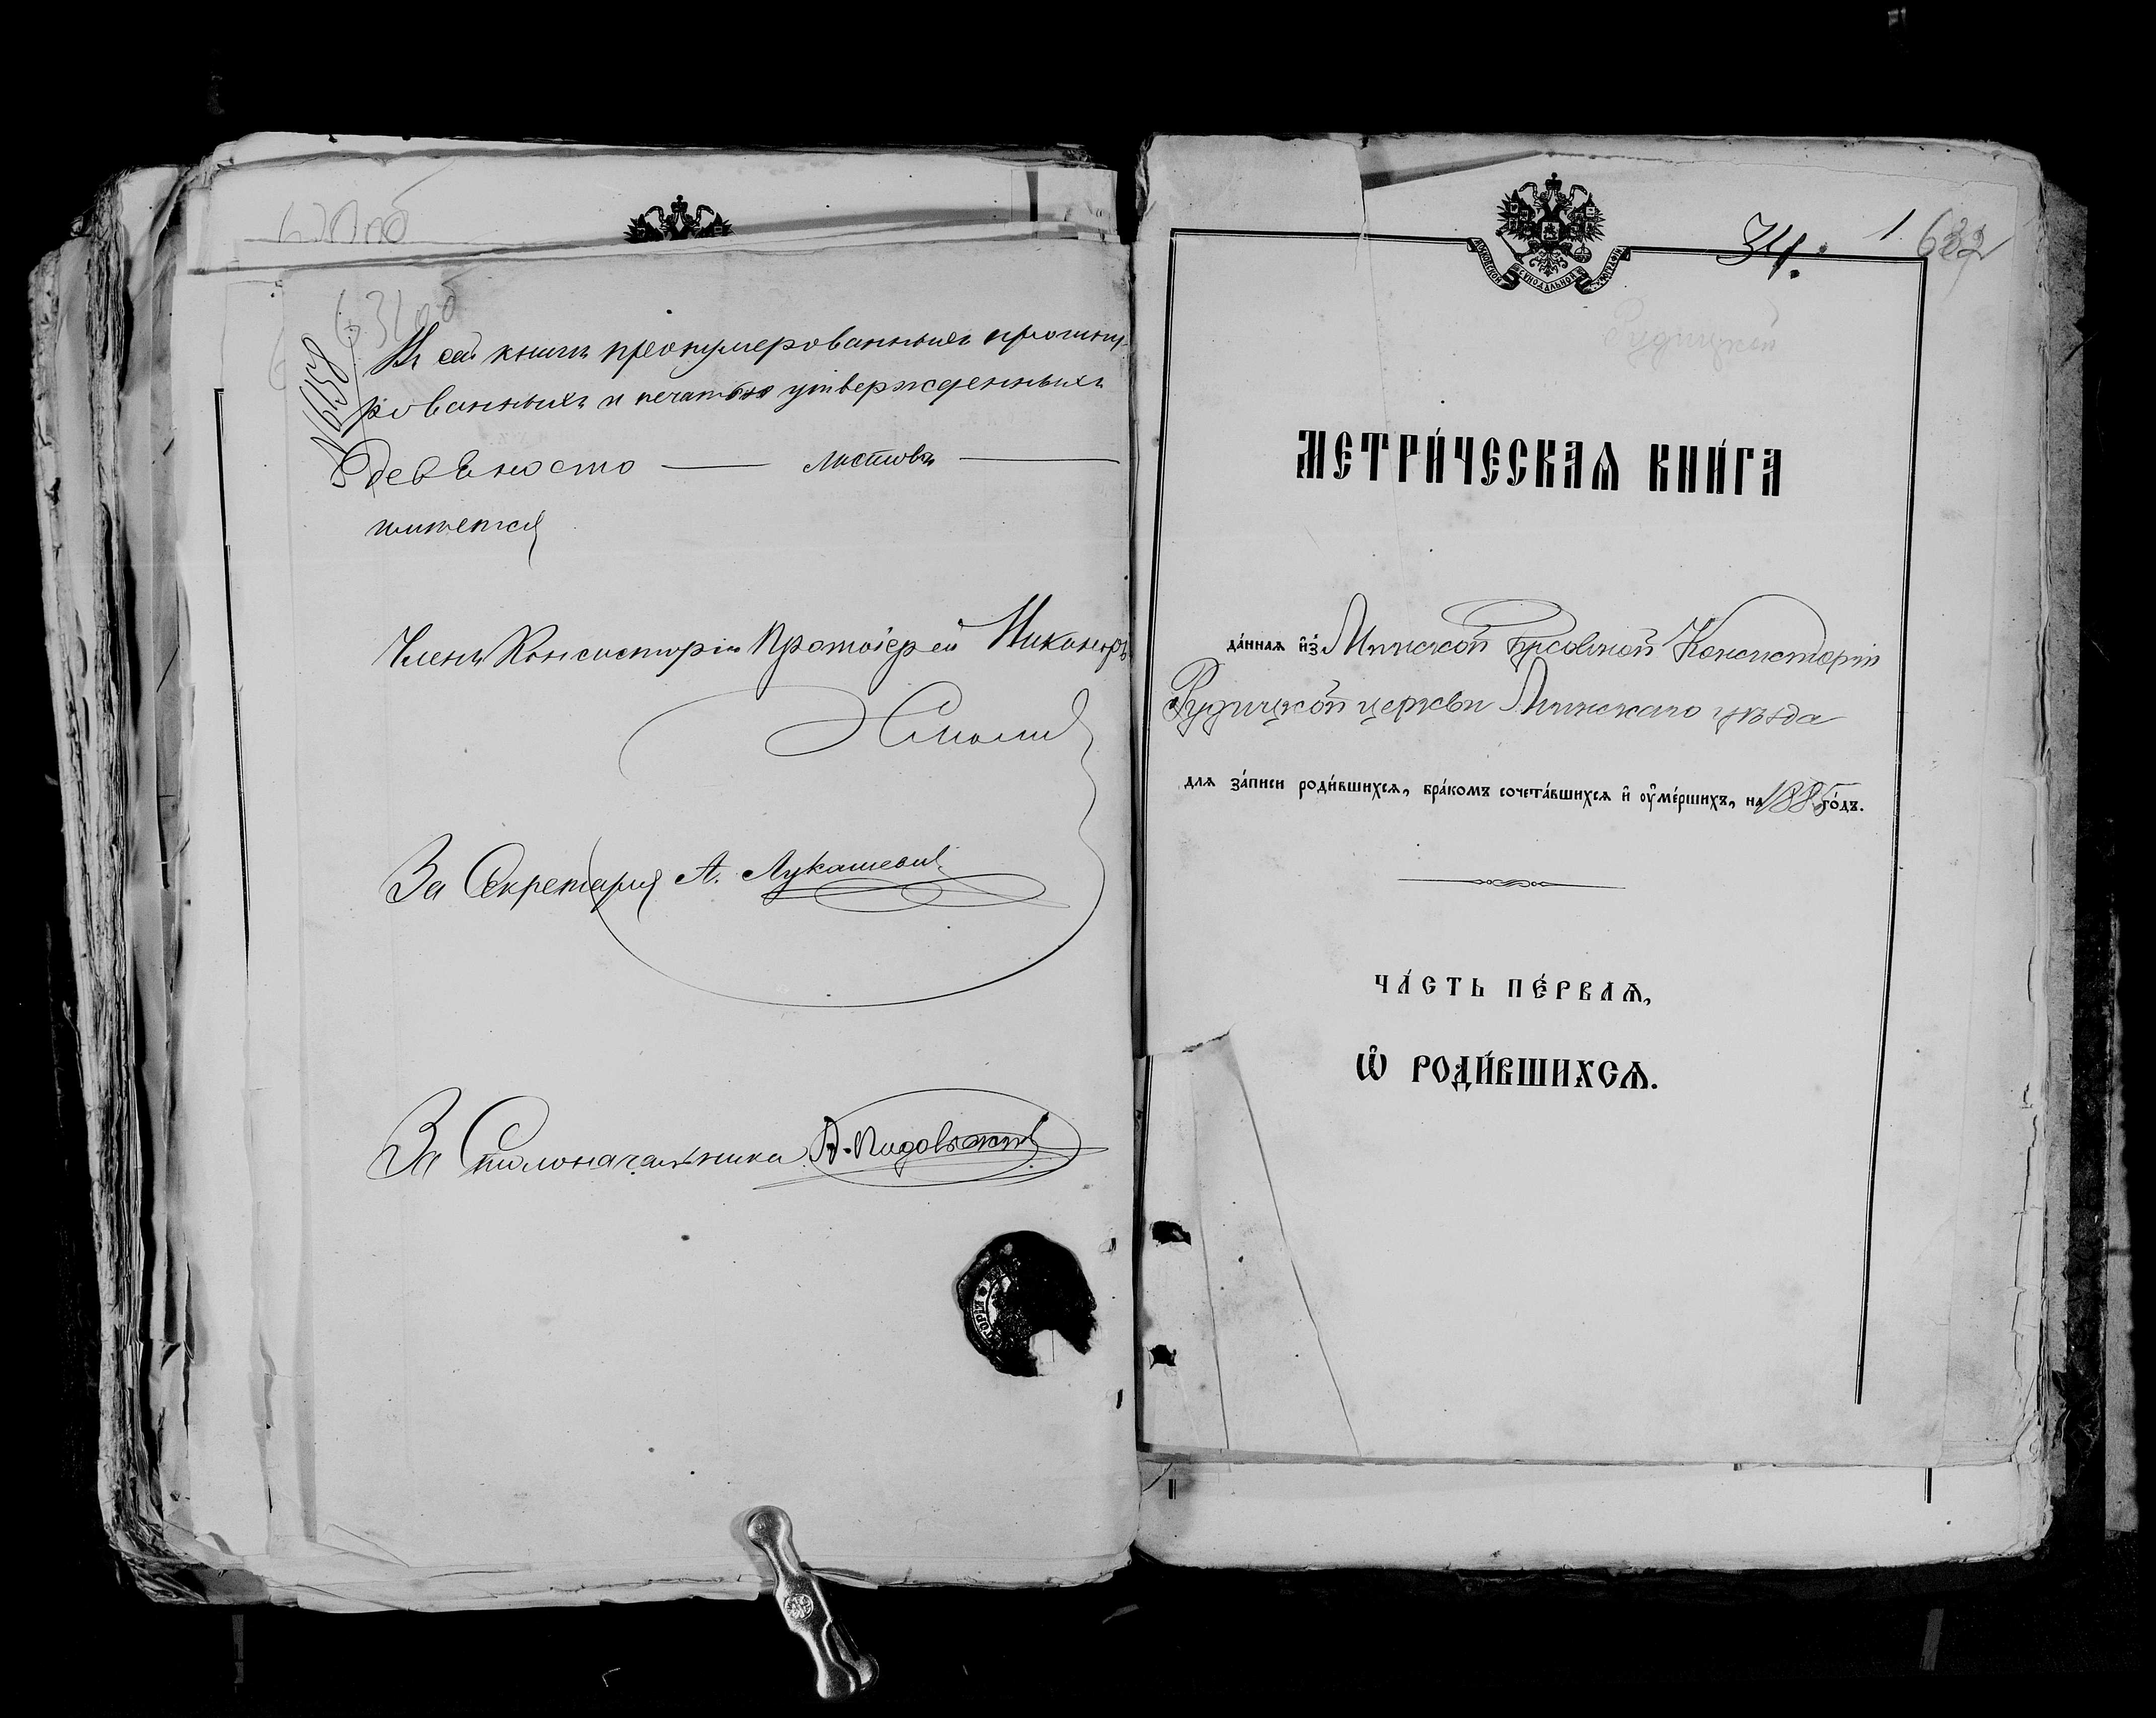 631 об
№ 6458
Въ сей книгѣ пронумерованныхъ прошну-
рованныхъ и печатью утвержденныхъ
девяносто — листовъ —
имѣется
Членъ Консисторіи Протоіерей Никаноръ
Смолич
За Секретаря А. Лукашевич
За Столоначальника
ТОРІИ
34.
1
632
МОСКОВСКОЙ СѴНОДАЛЬНОЙ ТѴПОГРАФІИ
Рудицкой
МЕТРИ́ЧЕСКАѦ КНИ́ГА
да́нная и҆з̾ Минской Духовной Консисторіи
Рудицкой церкви Минскаго уѣзда
для за́писи роди́вшихся, бра́комъ сочета́вшихся и҆ ᲂу҆ме́ршихъ, на 1885 го́дъ.
ЧА́СТЬ ПЕ́РВАѦ,
Ѽ РОДИ́ВШИХСѦ.